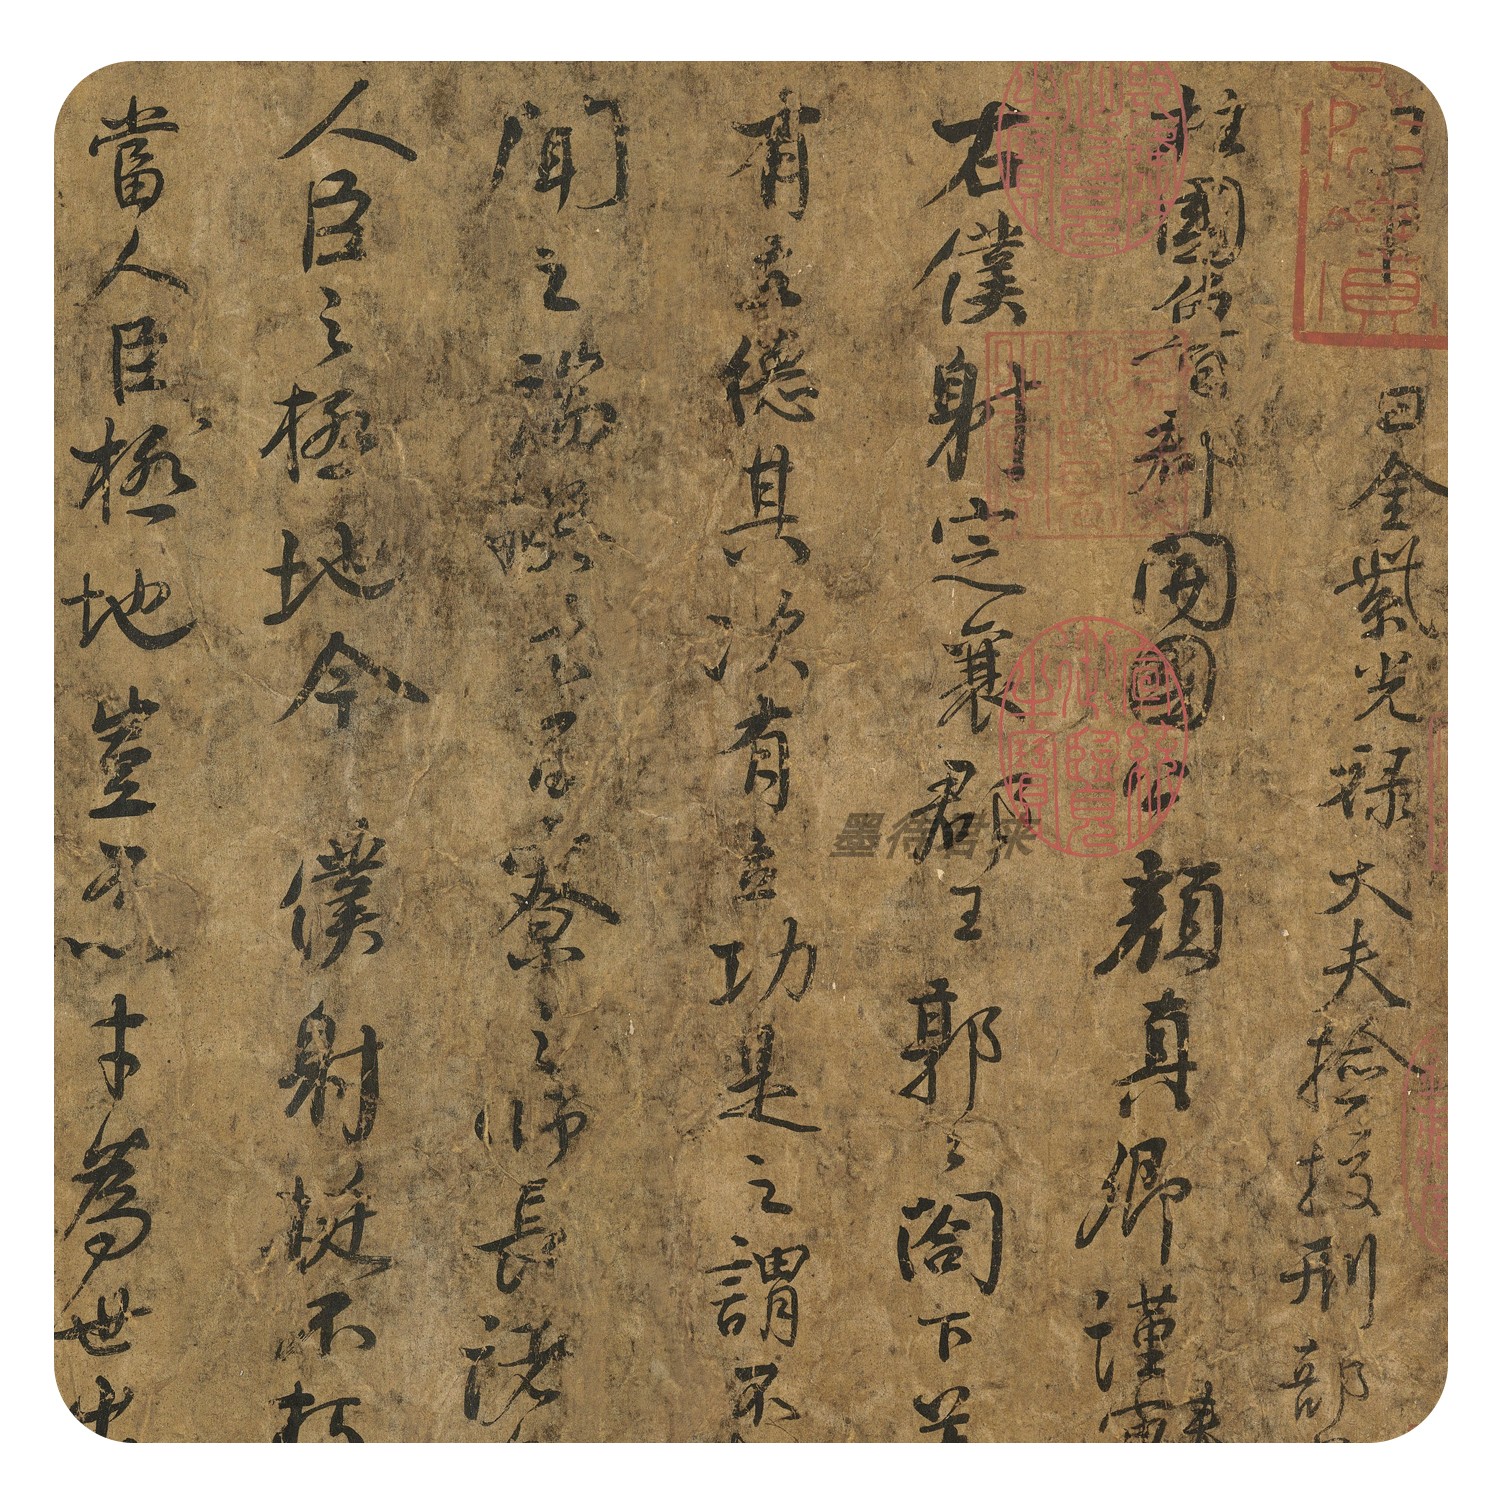 月 日金紫光祿大夫檢挍刑部
柱國魯郡開國公顔真卿謹
右僕射定襄郡王郭之閤下蓋
有立德其次有立功是之謂不
聞之端揆者百寮之師長諸
人臣之極地今僕射挺不
當人臣極地豈不以才為世出
墨待君来